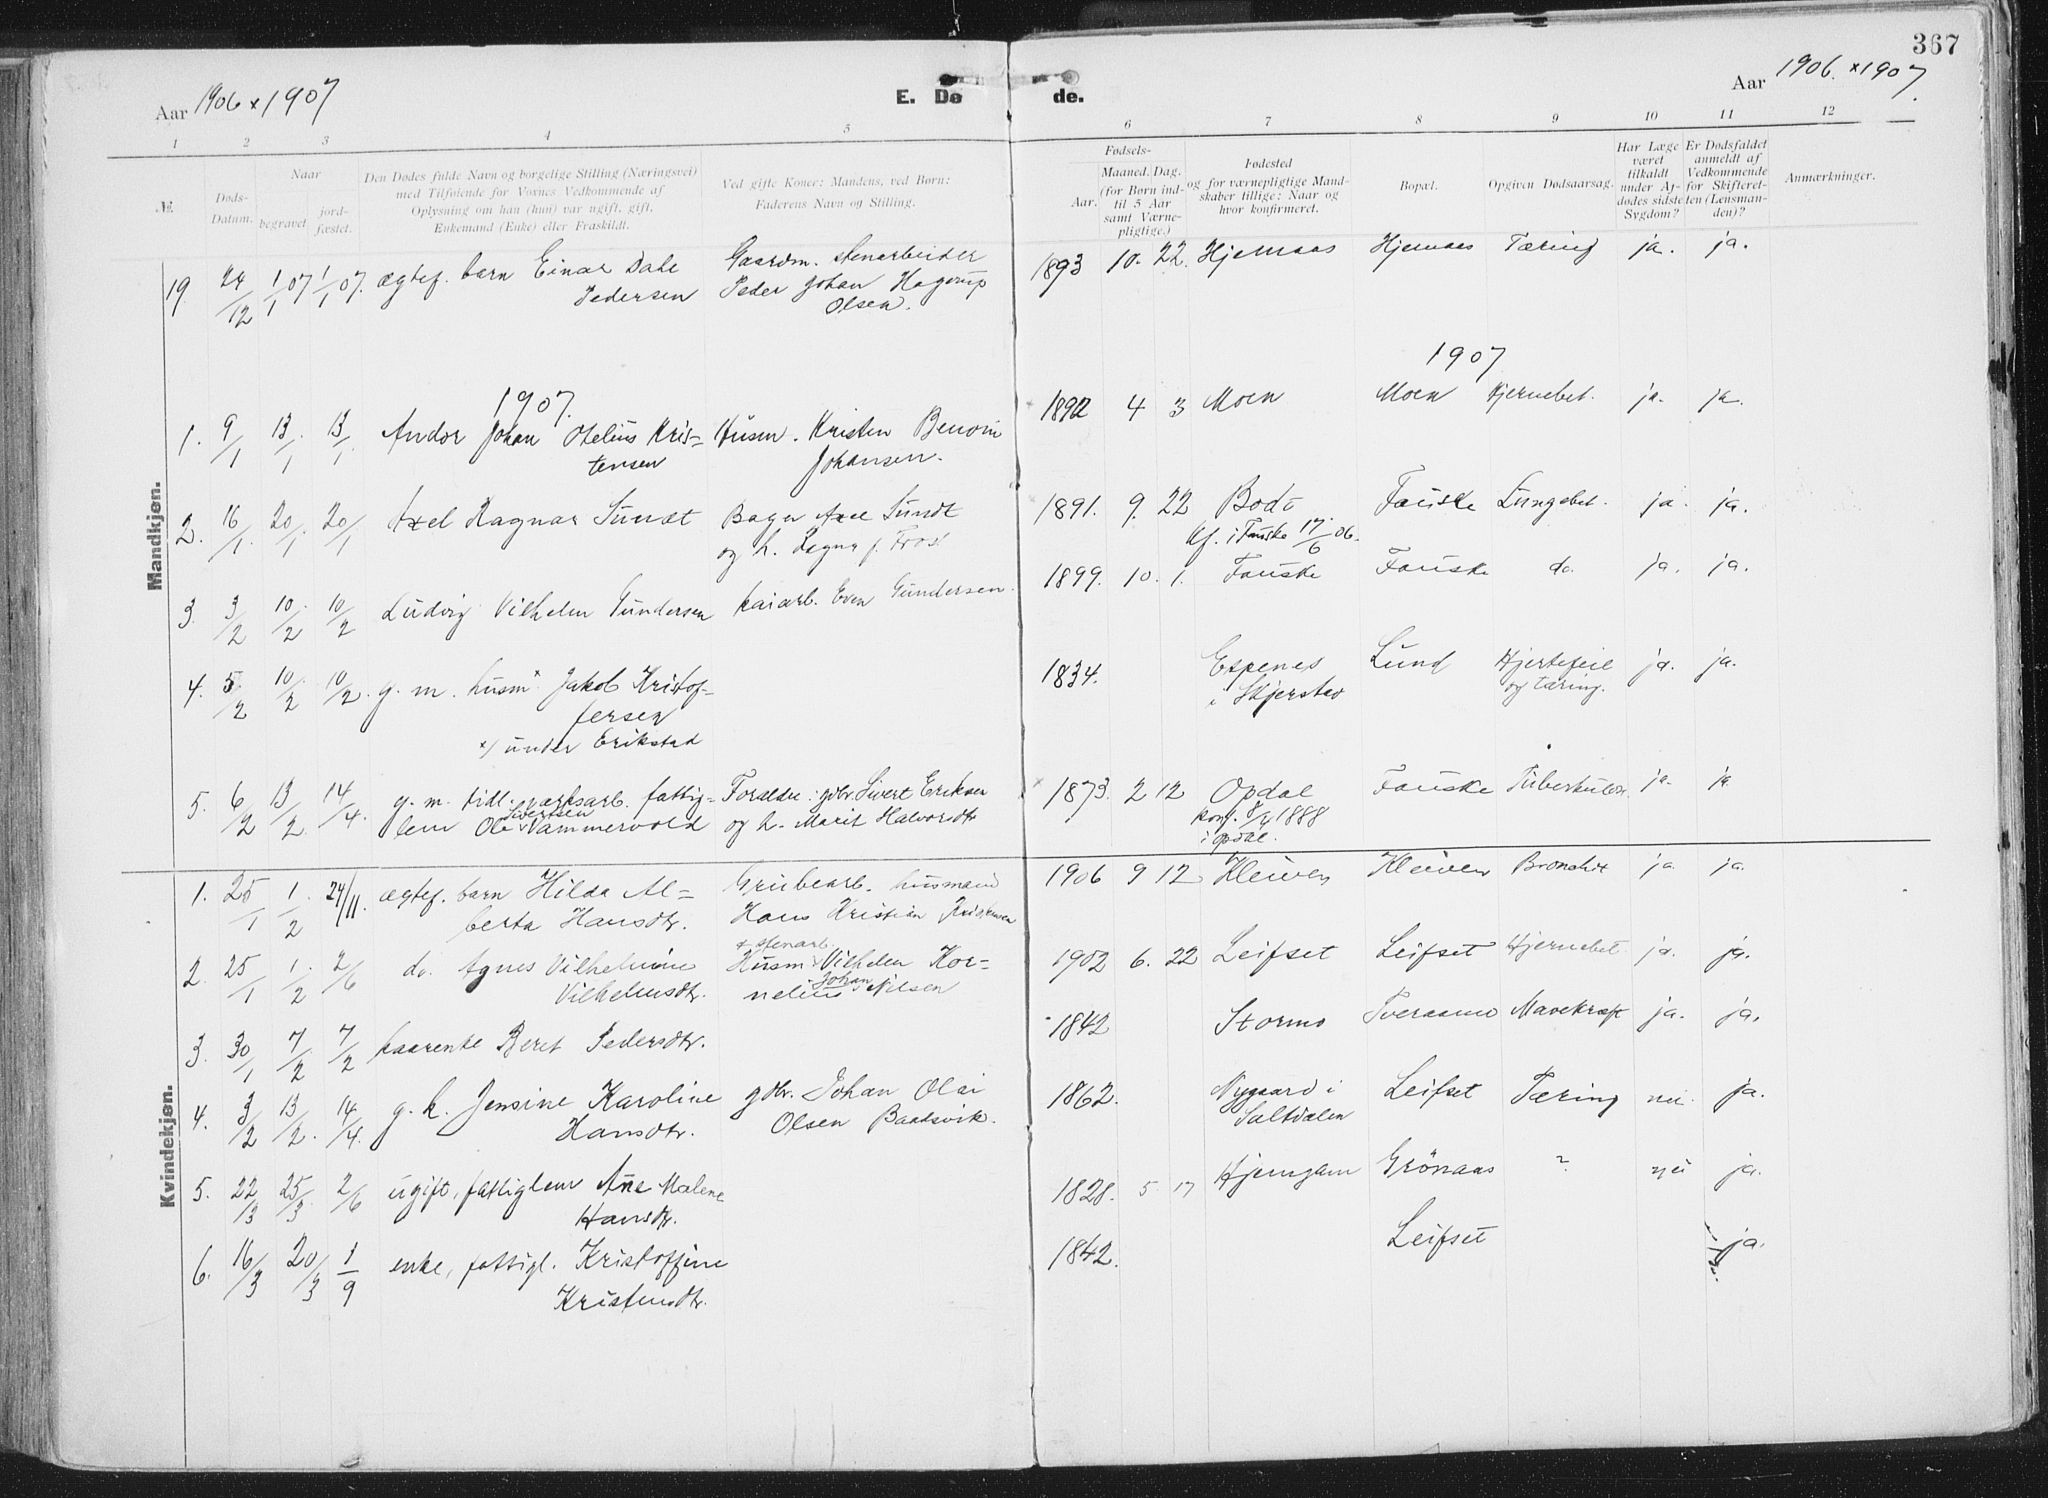 367
Aar 1906 × 1907
E. Dø de.
Aar 1906. × 1907.
1 2 3 4 5 6 7 8 9 10 11 12
№.
Døds-Datum.
Naar
begravet
jord-fæstet.
Den Dødes fulde Navn og borgelige Stilling (Næringsvei)
med Tilføiende for Voxnes Vedkommende af
Oplysning om han (hun) var ugift, gift,
Enkemand (Enke) eller Fraskildt.
Ved gifte Koner: Mandens, ved Børn:
Faderens Navn og Stilling.
Fødsels-
Aar.
Maaned. Dag.
(for Børn ind-
til 5 Aar
samt Værne-
pligtige.)
Fødested
og for værnepligtige Mand-
skaber tillige: Naar og
hvor konfirmeret.
Bopæl.
Opgiven Dødsaarsag.
Har Læge
været
tilkaldt
under Af-
dødes sidste
Sygdom?
Er Dødsfaldet
anmeldt af
Vedkommende
for Skifteret-
ten (Lensman-
den)?
Anmærkninger.
Mandkjøn.
19. 24/12 1/1 07 1/1 07. ægtef. barn Einar Dahl Gaardm. stenarbeider 1893 10. 22. Hjemaas Hjemaas Tæring ja. ja.
Pedersen Peder Johan Hagerup
Olsen.
1907. 1907
1. 9/1 13/1 13/1 Andor Johan Otelius Kris- Husm. Kristen Benoni 1892 4 3 Moen Moen Hjernebet. ja. ja.
tensen Johansen.
2. 16/1. 20/1 20/1 Axel Ragnar Sundt Bager Axel Sundt 1891. 9. 22 Bodø Fauske Lungebet. ja. ja.
og h. Ragna f. Frost Kf. i Fauske 17/6 06.
3. 3/2 10/2 10/2 Ludvig Vilhelm Gundersen kaiarb. Even Gundersen. 1899. 10. 1. Fauske Fauske do. ja. ja.
4. 5/2 10/2 10/2. g. m. husm× Jakob Kristof- 1834. Espenes Lund Hjertefeil ja. ja.
fersen i Skjerstad og tæring.
×/ under Erikstad
5. 6/2 13/2. 14/4. g. m. tidl. værksarb. fattig- Forældre: gbr. Sivert Eriksen 1873. 2 12 Opdal Fauske Tuberkulose ja. ja
lem Ole Sivertsen Vammervold og h. Marit Halvorsdtr konf. 8/4 1888
i Opdal.
Kvindekjøn.
1. 25/1 1/2 24/11. ægtef. barn Hilda Al- Grubearb. husmand 1906 9 12 Kleiven Kleiven Bronchit ja ja.
berta Hansdtr. Hans Kristian Kristensen
+ stenarb.
2. 25/1 1/2 2/6 do. Agnes Vilhelmine Husm. Vilhelm Kor- 1902 6. 22 Leifset Leifset Hjernebet. ja. ja.
Vilhelmsdtr. nelius Johan Nilsen
3. 30/1 7/2 7/2 kaarenke Beret Pedersdtr. 1842 Stormo Tveraamo Mavekræft ja. ja.
4. 3/2 13/2. 14/4. g. k. Jensine Karoline gbr. Johan Olai 1862. Nygaard i Leifset Tæring nei ja.
Hansdtr. Olsen Baadsvik. Saltdalen
5. 22/3 25/3. 2/6 ugift, fattiglem Ane Malene 1828. 5. 17 Hjemgam Grönaas ? nei ja.
Hansdtr.
6. 16/3 20/3 1/9 enke, fattigl. Kristoffine 1842. Leifset ja.
Kristensdtr.